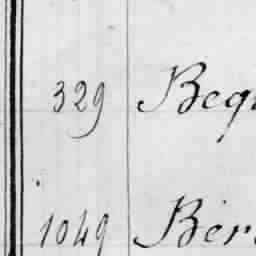 329 Beq
1049 Ber